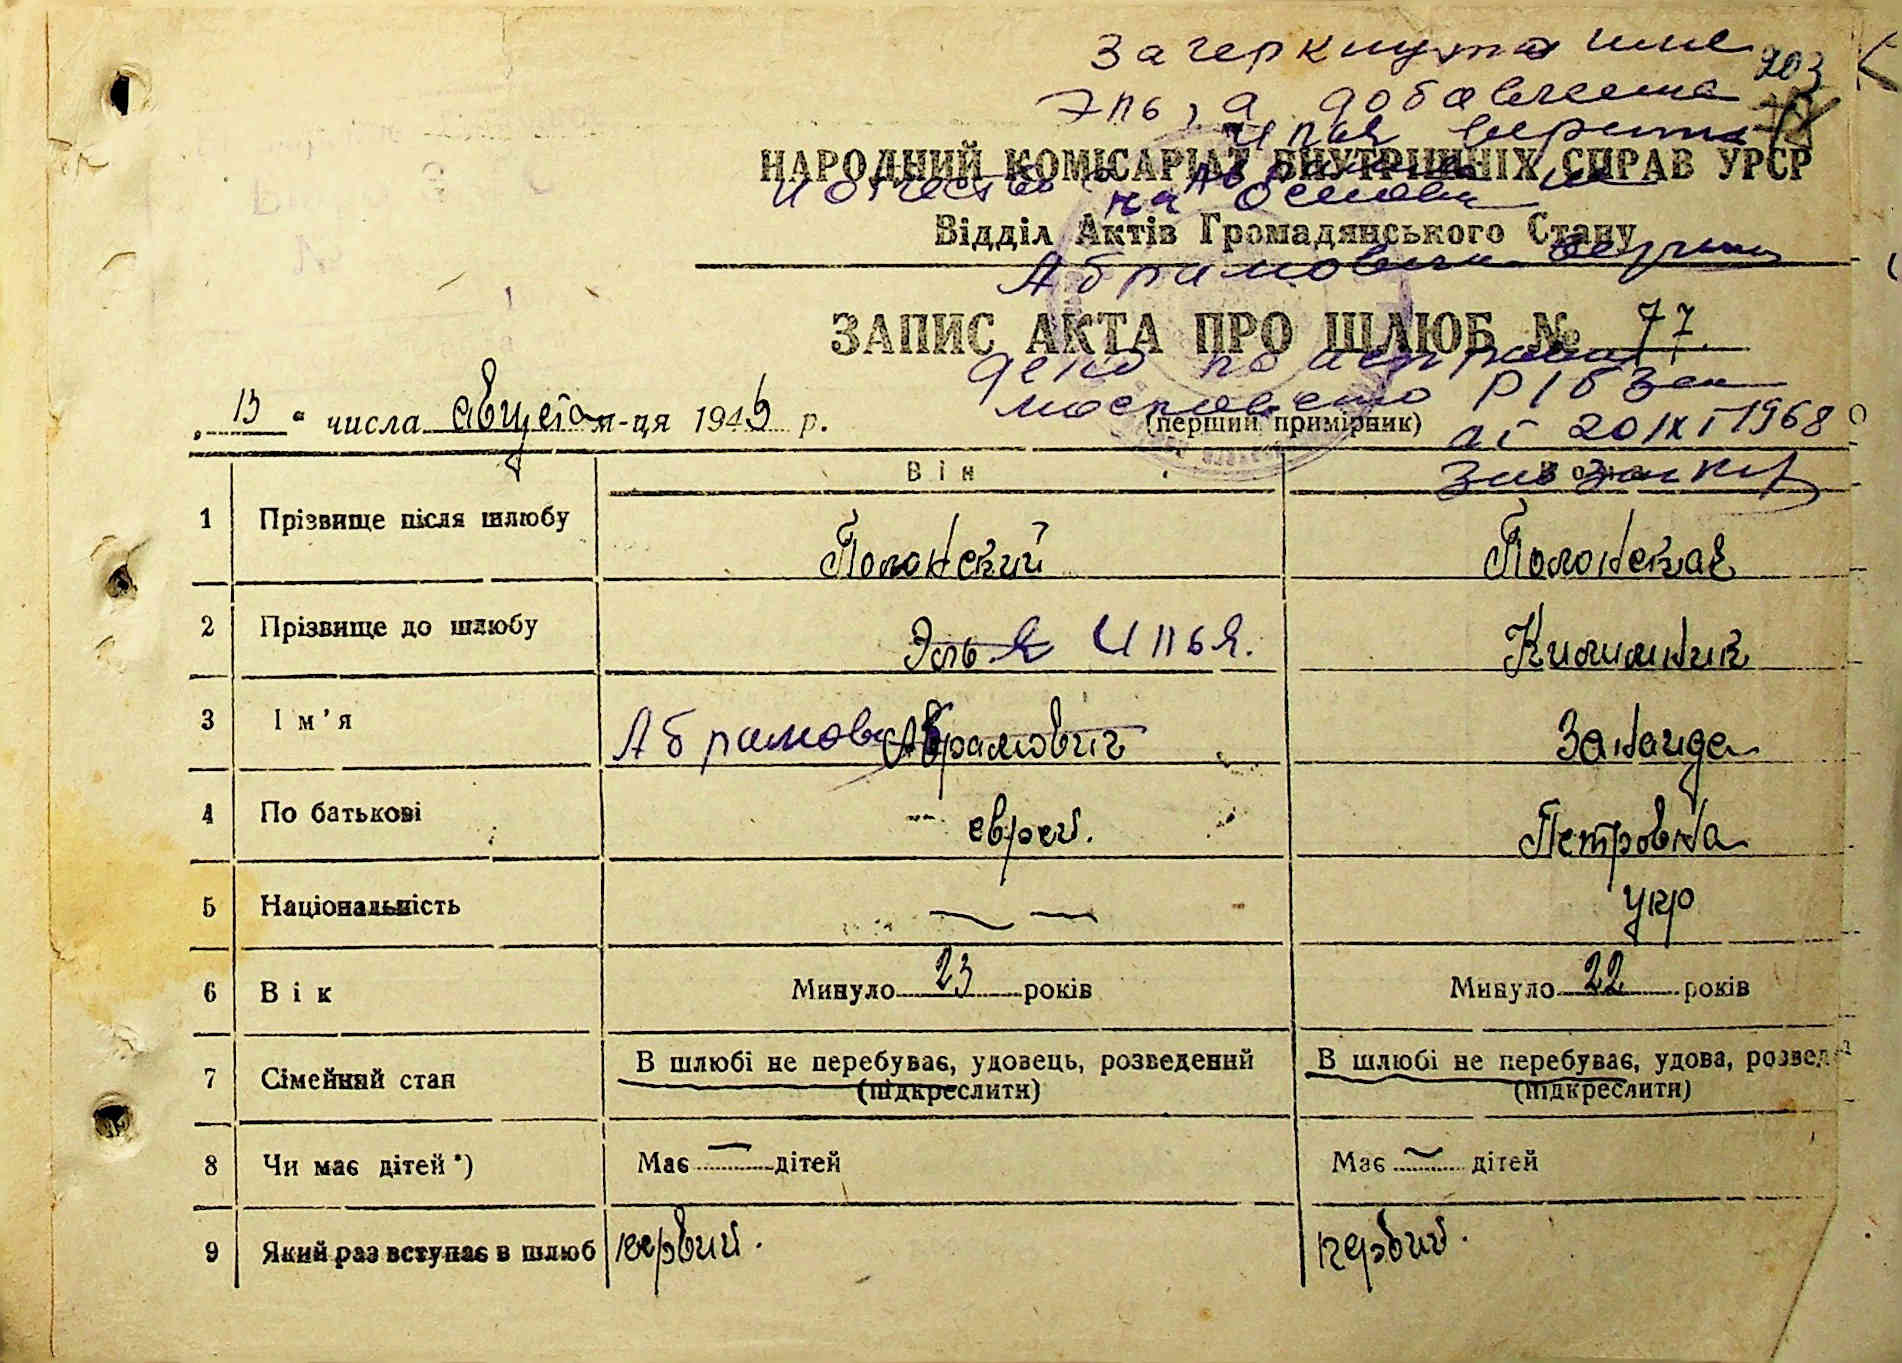 Зачеркнута имя
203
Эль, а добавлена
Илья верить
НАРОДНИЙ КОМІСАРІАТ ВНУТРІШНІХ СПРАВ УРСР
и отчество на основа
Відділ Актів Громадянського Стану
Абрамович верить
ЗАПИС АКТА ПРО ШЛЮБ № 77.
"13" числа августа м-ця 1945 р.
(перший примірник)
от 20/XI-1968
Він
1 Прізвище після шлюбу Полонский Полонская
2 Прізвище до шлюбу Эль Я Илья. Килимник
3 Ім'я Абрамов Абрамович Зинаида
4 По батькові еврей. Петровна
5 Національність — — укр
6 Вік Минуло 23 років Минуло 22 років
7 Сімейний стан В шлюбі не перебуває, удовець, розведений В шлюбі не перебуває, удова, розвед
(підкреслити) (підкреслити)
8 Чи має дітей*) Має — дітей Має — дітей
9 Який раз вступає в шлюб первый. первый.